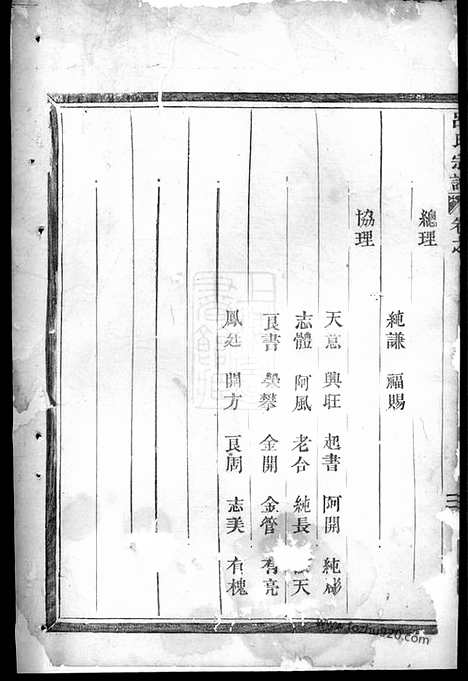 呂氏宗譜 卷之
總理
純謙 福賜
協理
天意 興旺 起書 阿開 純彬
志體 阿風 老合 純長 天
良書 攀 金開 金管 有亮
鳳廷 開方 良周 志美 有槐
三
www.fozhu920.com